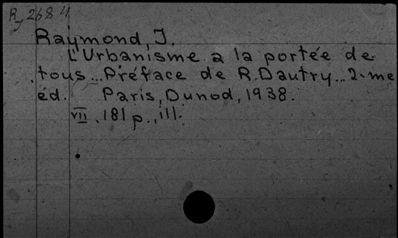 Raymond, J.
L'Urbanisme a la portée de
tous... Préface de R. Dautry... 2. me
éd. Paris, Dunod, 1938.
VII. 181 p., ill.